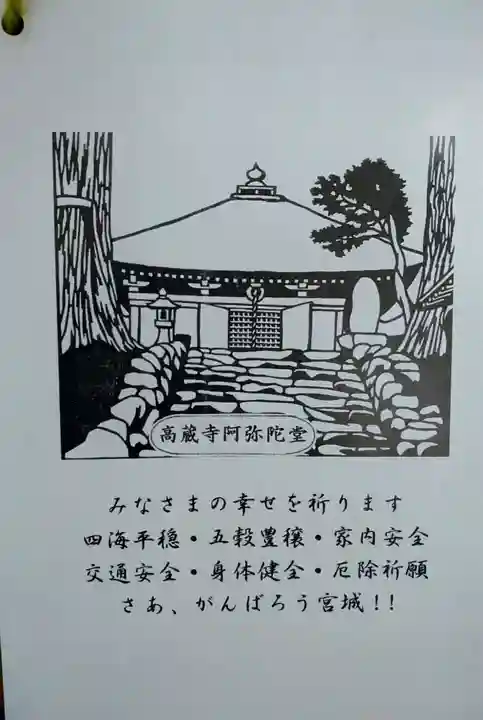 高蔵寺阿弥陀堂
みなさまの幸せを祈ります
四海平穏・五穀豊穣・家内安全
交通安全・身体健全・厄除祈願
さあ、がんばろう宮城!!